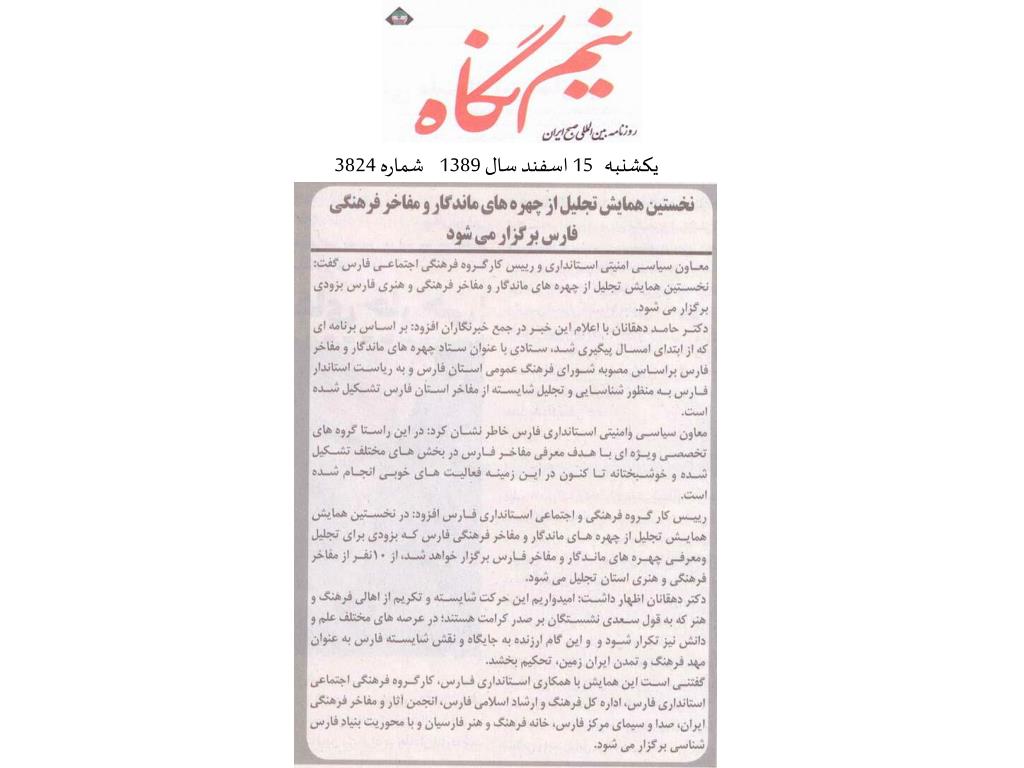 نیم نگاه
روزنامه بین المللی صبح ایران
یکشنبه 15 اسفند سال 1389 شماره 3824
نخستین همایش تجلیل از چهره های ماندگار و مفاخر فرهنگی
فارس برگزار می شود
معاون سیاسی امنیتی استانداری و رییس کارگروه فرهنگی اجتماعی فارس گفت:
نخستین همایش تجلیل از چهره های ماندگار و مفاخر فرهنگی و هنری فارس بزودی
برگزار می شود.
دکتر حامد دهقانان با اعلام این خبر در جمع خبرنگاران افزود: بر اساس برنامه ای
که از ابتدای امسال پیگیری شد، ستادی با عنوان ستاد چهره های ماندگار و مفاخر
فارس براساس مصوبه شورای فرهنگ عمومی استان فارس و به ریاست استاندار
فارس به منظور شناسایی و تجلیل شایسته از مفاخر استان فارس تشکیل شده
است.
معاون سیاسی وامنیتی استانداری فارس خاطر نشان کرد: در این راستا گروه های
تخصصی ویژه ای با هدف معرفی مفاخر فارس در بخش های مختلف تشکیل
شده و خوشبختانه تا کنون در این زمینه فعالیت های خوبی انجام شده
است.
رییس کار گروه فرهنگی و اجتماعی استانداری فارس افزود: در نخستین همایش
همایش تجلیل از چهره های ماندگار و مفاخر فرهنگی فارس که بزودی برای تجلیل
ومعرفی چهره های ماندگار و مفاخر فارس برگزار خواهد شد، از ۱۰نفر از مفاخر
فرهنگی و هنری استان تجلیل می شود.
دکتر دهقانان اظهار داشت: امیدواریم این حرکت شایسته و تکریم از اهالی فرهنگ و
هنر که به قول سعدی نشستگان بر صدر کرامت هستند؛ در عرصه های مختلف علم و
دانش نیز تکرار شود و و این گام ارزنده به جایگاه و نقش شایسته فارس به عنوان
مهد فرهنگ و تمدن ایران زمین، تحکیم بخشد.
گفتنی است این همایش با همکاری استانداری فارس، کارگروه فرهنگی اجتماعی
استانداری فارس، اداره کل فرهنگ و ارشاد اسلامی فارس، انجمن آثار و مفاخر فرهنگی
ایران، صدا و سیمای مرکز فارس، خانه فرهنگ و هنر فارسیان و با محوریت بنیاد فارس
شناسی برگزار می شود.